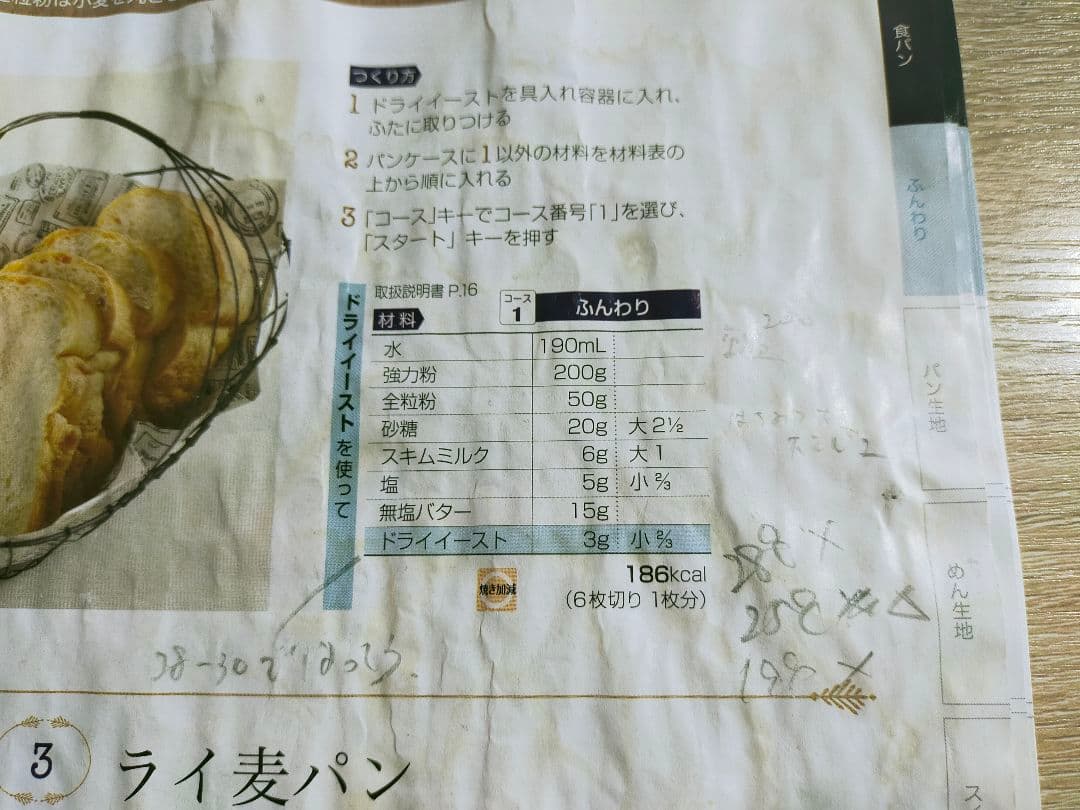 つくり方
1 ドライイーストを具入れ容器に入れ、
ふたに取りつける
2 パンケースに1以外の材料を材料表の
上から順に入れる
3 「コース」キーでコース番号「1」を選び、
「スタート」キーを押す
ドライイーストを使って
取扱説明書 P.16
材料 コース 1 ふんわり
水 190mL
強力粉 200g
全粒粉 50g
砂糖 20g 大2½
スキムミルク 6g 大1
塩 5g 小⅔
無塩バター 15g
ドライイースト 3g 小⅔
焼き加減
186kcal
(6枚切り 1枚分)
3 ライ麦パン
食パン
ふんわり
パン生地
めん生地
ス